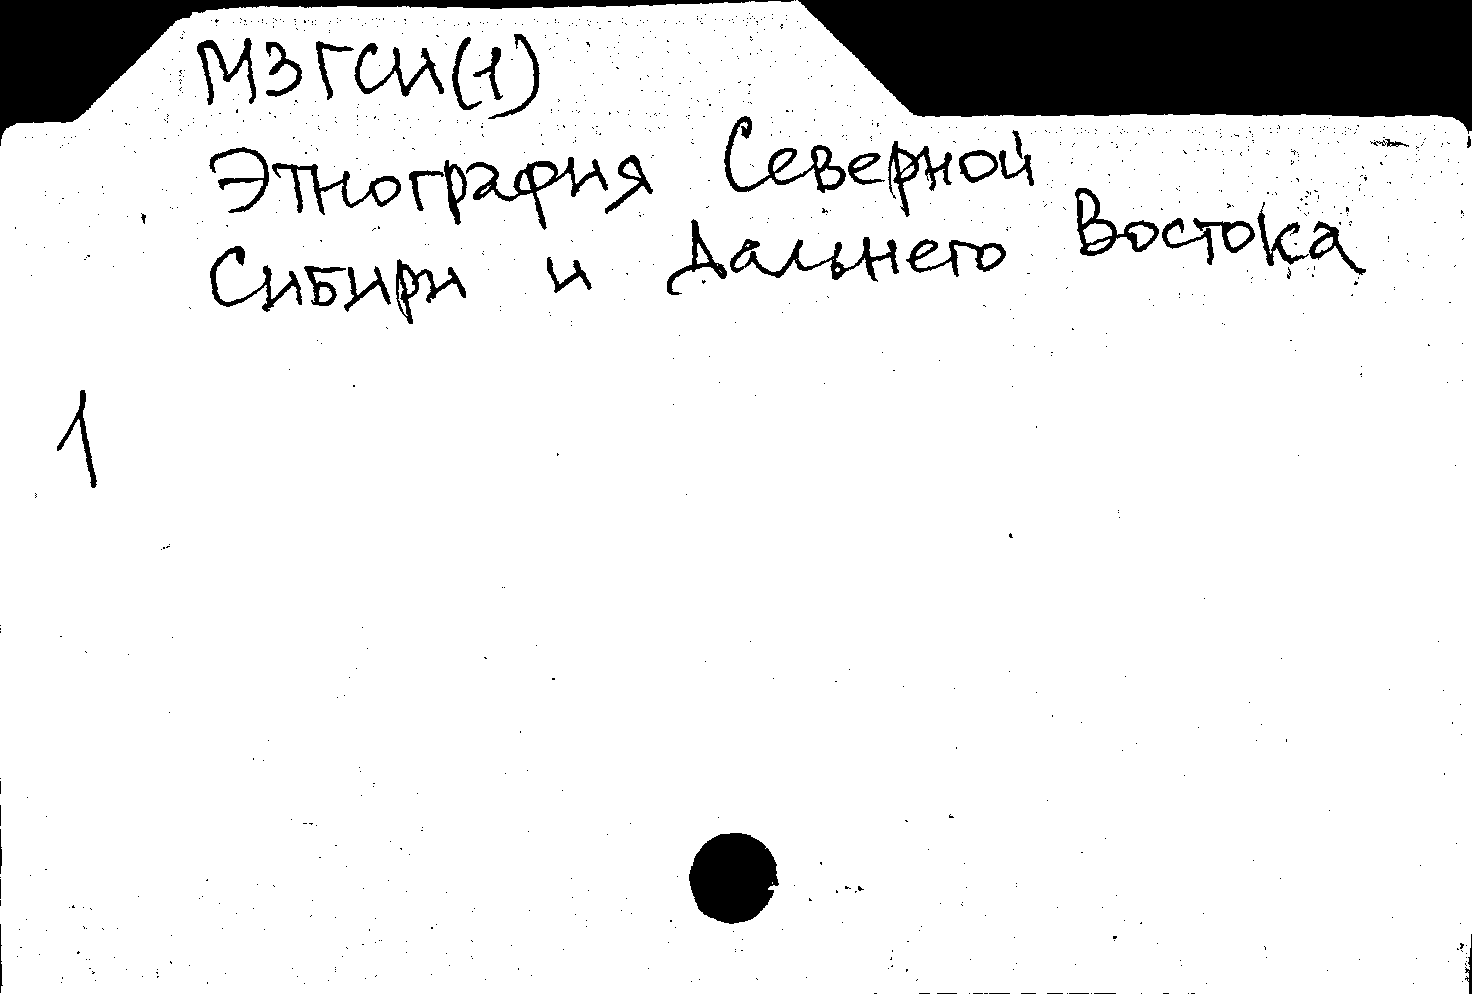 МЗГСИ(1)
Этнография Северной
Сибири и Дальнего Востока
1